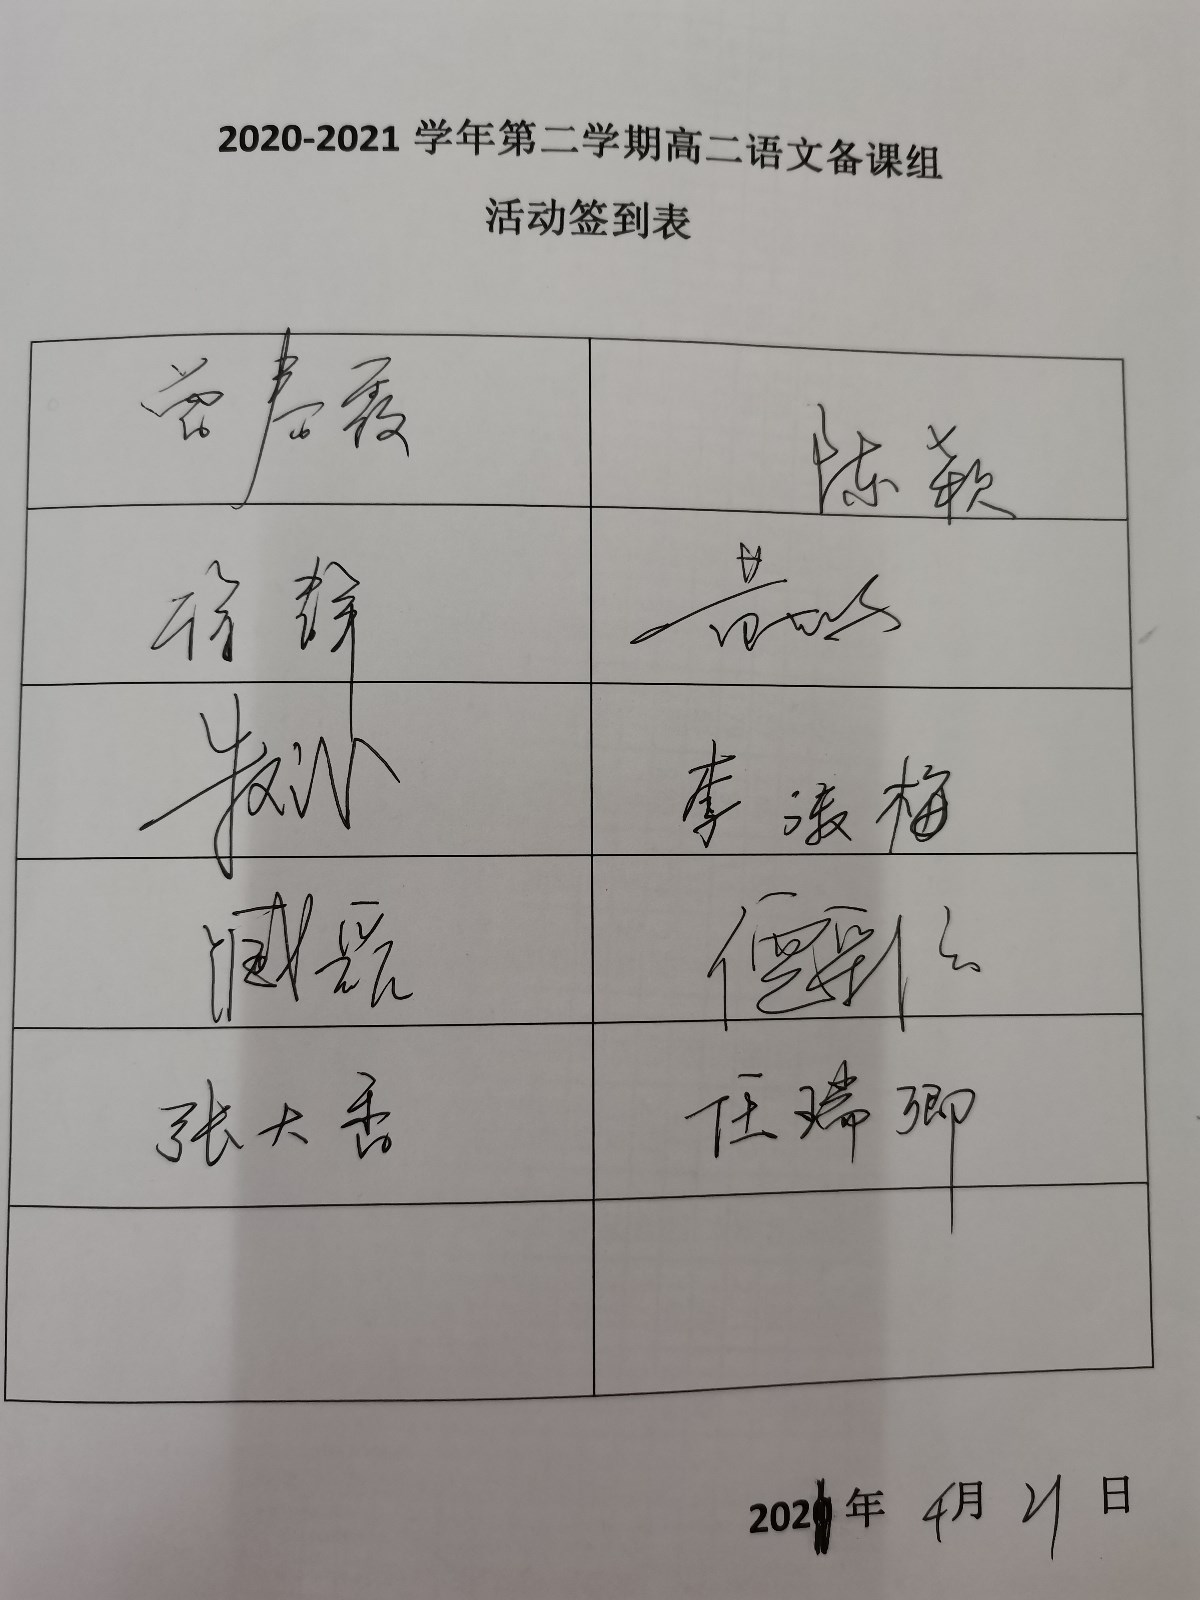 2020-2021 学年第二学期高二语文备课组
活动签到表
曾春霞
陈颖
徐静
李淑梅
臧霓
张大香 任瑞卿
2021 年 4月 21 日